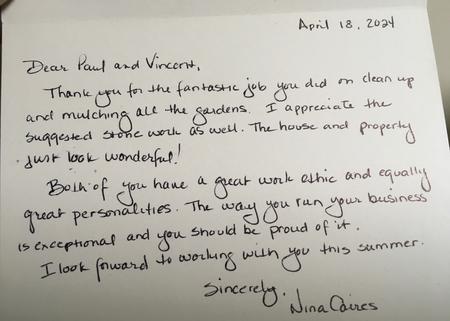 April 18, 2024
Dear Paul and Vincent,
Thank you for the fantastic job you did on clean up
and mulching all the gardens. I appreciate the
suggested stone work as well. The house and property
just look wonderful!
Both of you have a great work ethic and equally
great personalities. The way you run your business
is exceptional and you should be proud of it.
I look forward to working with you this summer.
Sincerely,
Nina Caires